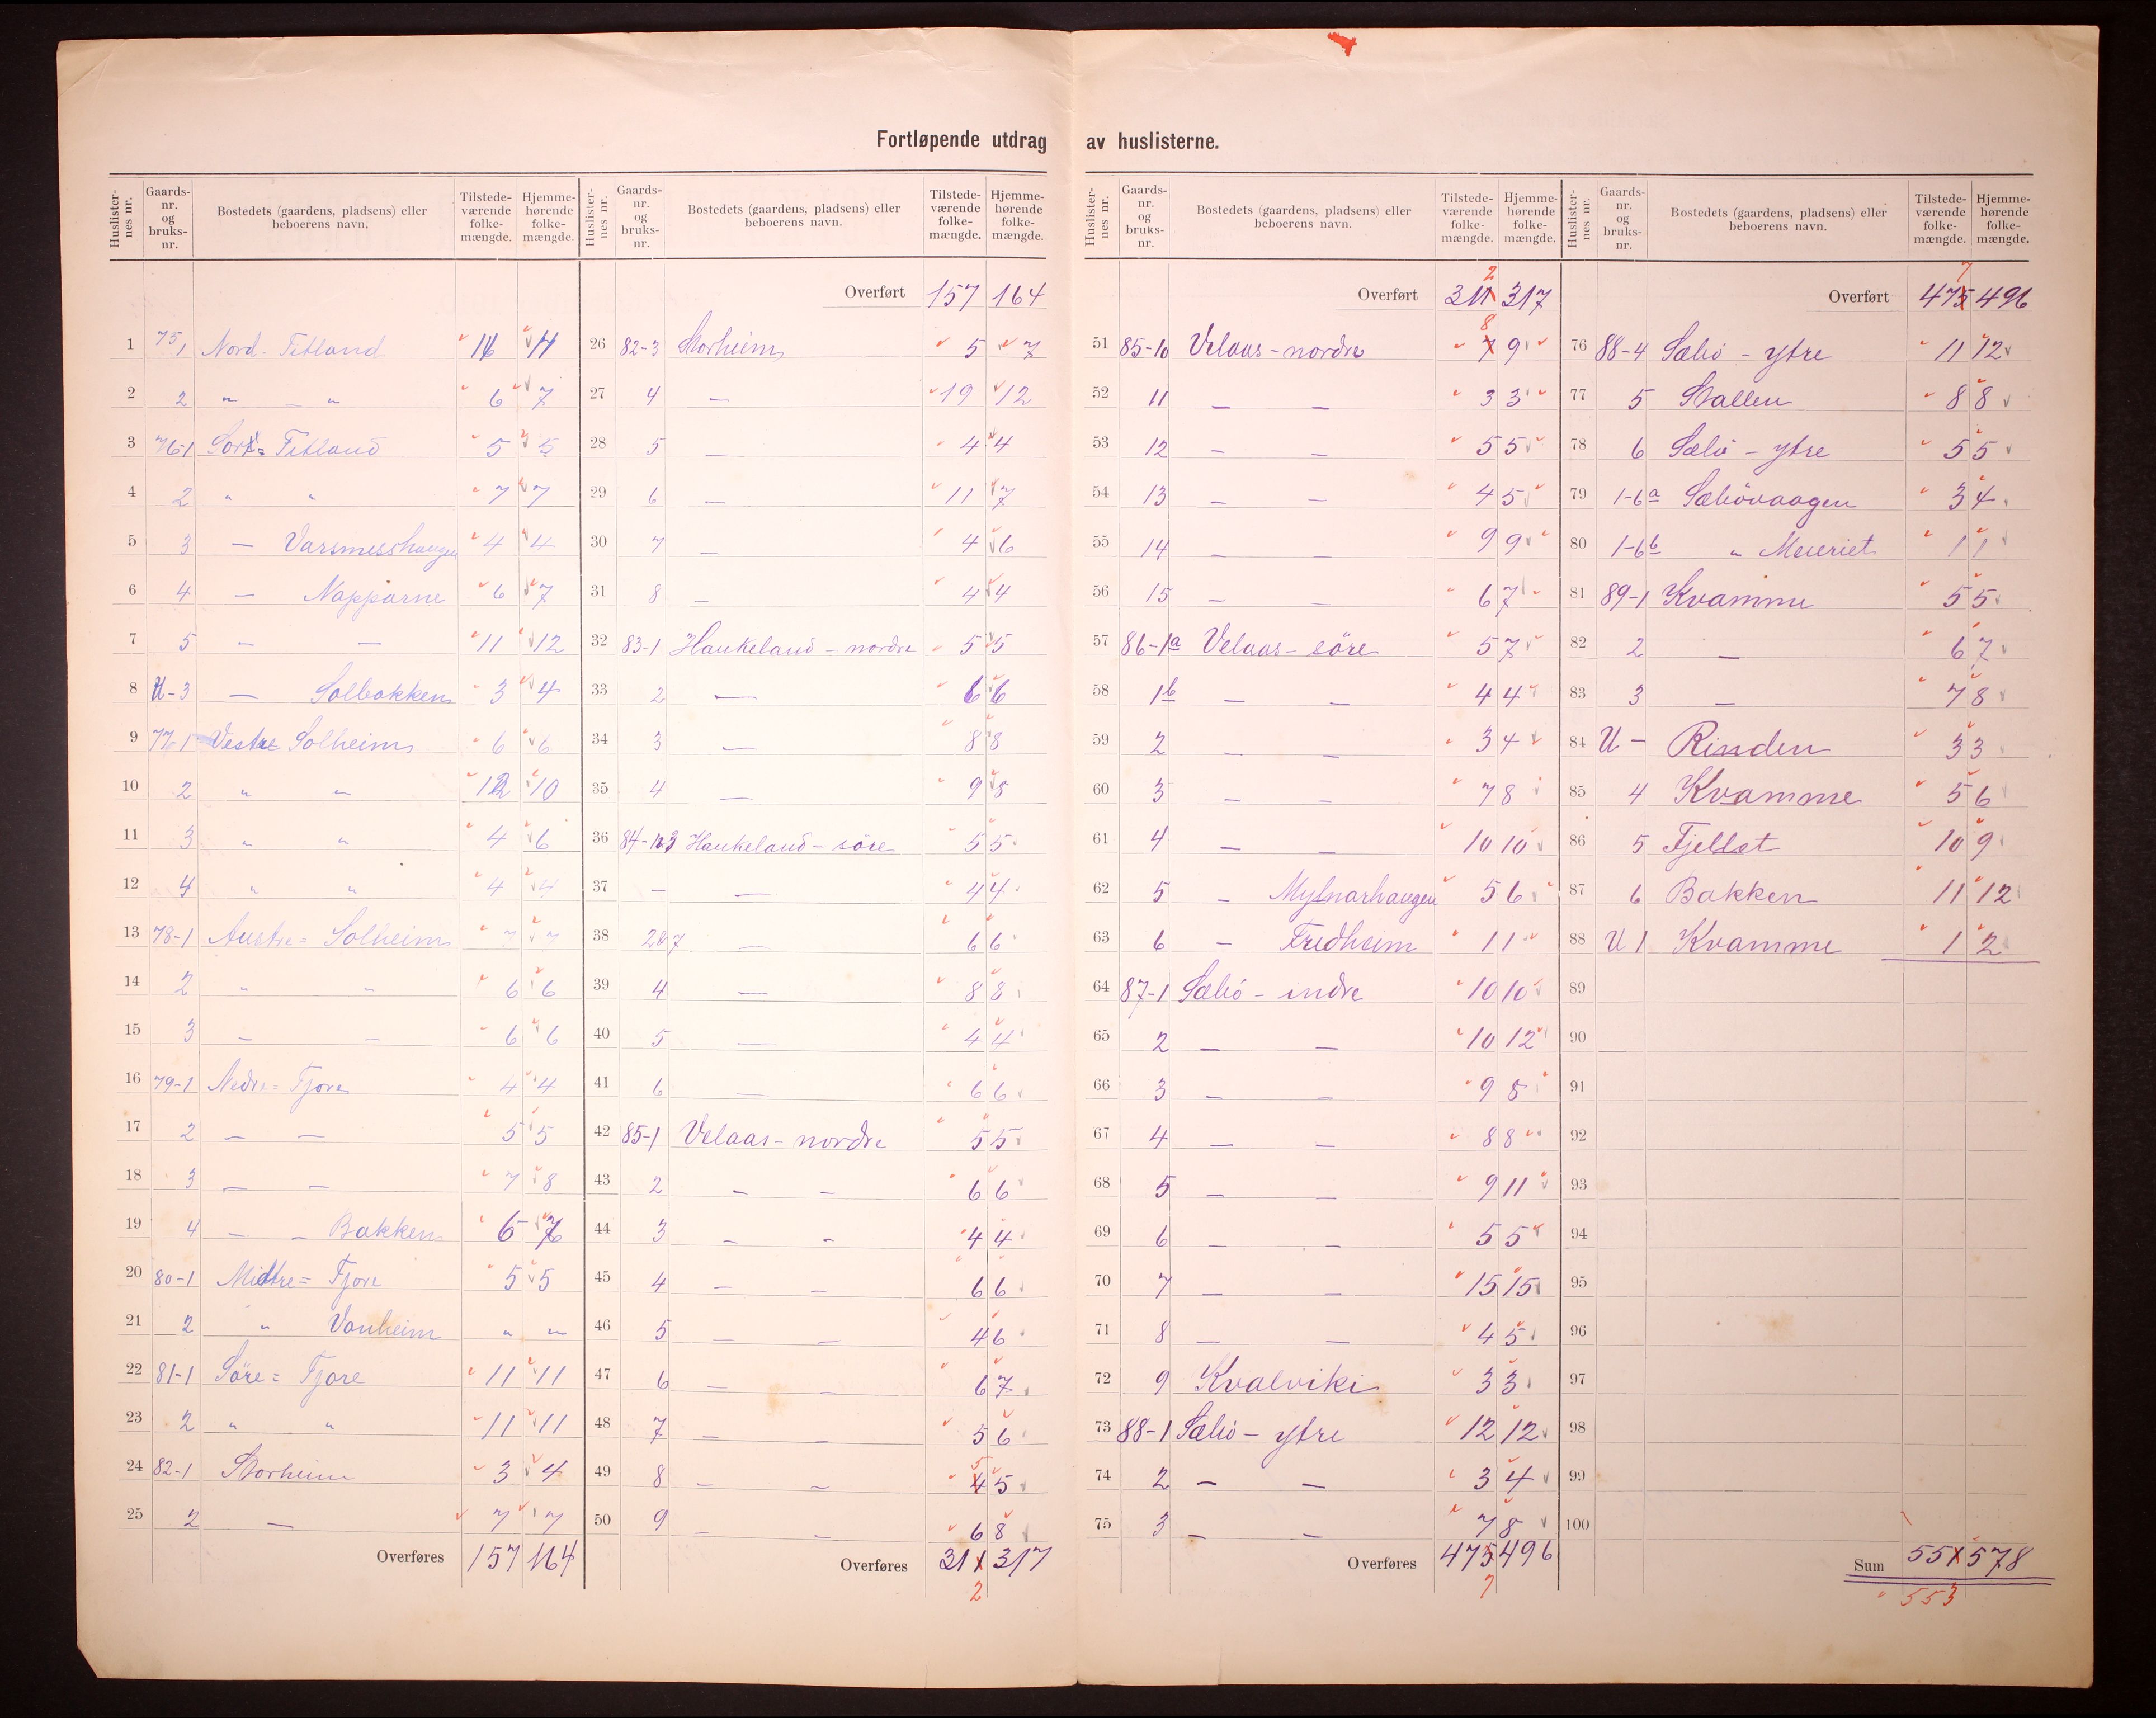 Fortløpende utdrag av huslisterne.
Huslisternes nr. Gaards-nr. og bruks-nr. Bostedets (gaardens, pladsens) eller beboerens navn. Tilstedeværende folkemængde. Hjemmehørende folkemængde.
1 75,1 Nord-Titland
2 2 " — " 6 7
3 76-1 Sør= Titland 5 5
4 2 " " 7 7
5 3 — Varsmesshaugen 4 4
6 4 — Napparne 6 7
7 5 — — 11 12
8 U-3 — Solbakken 3 4
9 77-1 Vestre Solheim 6 6
10 2 " " 12 10
11 3 " " 4 6
12 4 " " 4 4
13 78-1 Austre= Solheim 7 7
14 2 " " 6 6
15 3 — — 6 6
16 79-1 Nedre= Fjore 4 4
17 2 — — 5 5
18 3 — — 7 8
19 4 — — Bakken 6 7
20 80-1 Midtre= Fjore 5 5
21 2 " Vonheim " "
22 81-1 Søre= Fjore 11 11
23 2 " " 11 11
24 82-1 Storheim 3 4
25 2 — 7 7
Overføres 157 164
Huslisternes nr. Gaards-nr. og bruks-nr. Bostedets (gaardens, pladsens) eller beboerens navn. Tilstedeværende folkemængde. Hjemmehørende folkemængde.
Overført 157 164
26 82-3 Storheim 5 7
27 4 — 19 12
28 5 — 4 4
29 6 — 11 7
30 7 — 4 6
31 8 — 4 4
32 83-1 Haukeland - nordre 5 5
33 2 — 6 6
34 3 — 8 8
35 4 — 9 8
36 84-1&3 Haukeland - søre 5 5
37 — — 4 4
38 2&7 — 6 6
39 4 — 8 8
40 5 — 4 4
41 6 — 6 6
42 85-1 Velaas - nordre 5 5
43 2 — — 6 6
44 3 — — 4 4
45 4 — — 6 6
46 5 — — 4 6
47 6 — — 6 7
48 7 — — 5 6
49 8 — — 4 5 5
50 9 — — 6 8
Overføres 311 317
2
Huslisternes nr. Gaards-nr. og bruks-nr. Bostedets (gaardens, pladsens) eller beboerens navn. Tilstedeværende folkemængde. Hjemmehørende folkemængde.
2
Overført 311 317
51 85-10 Velaas - nordre 7 8 9
52 11 — — 3 3
53 12 — — 5 5
54 13 — — 4 5
55 14 — — 9 9
56 15 — — 6 7
57 86-1a Velaas - søre 5 7
58 1b — — 4 4
59 2 — — 3 4
60 3 — — 7 8
61 4 — — 10 10
62 5 — Mylnarhaugen 5 6
63 6 — Fredheim 1 1
64 87-1 Sæbö - indre 10 10
65 2 — — 10 12
66 3 — — 9 8
67 4 — — 8 8
68 5 — — 9 11
69 6 — — 5 5
70 7 — — 15 15
71 8 — — 4 5
72 9 Kvalviki 3 3
73 88-1 Sæbö - ytre 12 12
74 2 — — 3 4
75 3 — — 7 8
Overføres 475 496
7
Huslisternes nr. Gaards-nr. og bruks-nr. Bostedets (gaardens, pladsens) eller beboerens navn. Tilstedeværende folkemængde. Hjemmehørende folkemængde.
7
Overført 475 496
76 88-4 Sæbö - ytre 11 12
77 5 Stallen 8 8
78 6 Sæbö - ytre 5 5
79 1-6a Sæbövaagen 3 4
80 1-6b " Meieriet 1 1
81 89-1 Kvamme 5 5
82 2 — 6 7
83 3 — 7 8
84 U - Rinden 3 3
85 4 Kvamme 5 6
86 5 Fjellet 10 9
87 6 Bakken 11 12
88 U 1 Kvamme 1 2
89
90
91
92
93
94
95
96
97
98
99
100
Sum 551 578
553